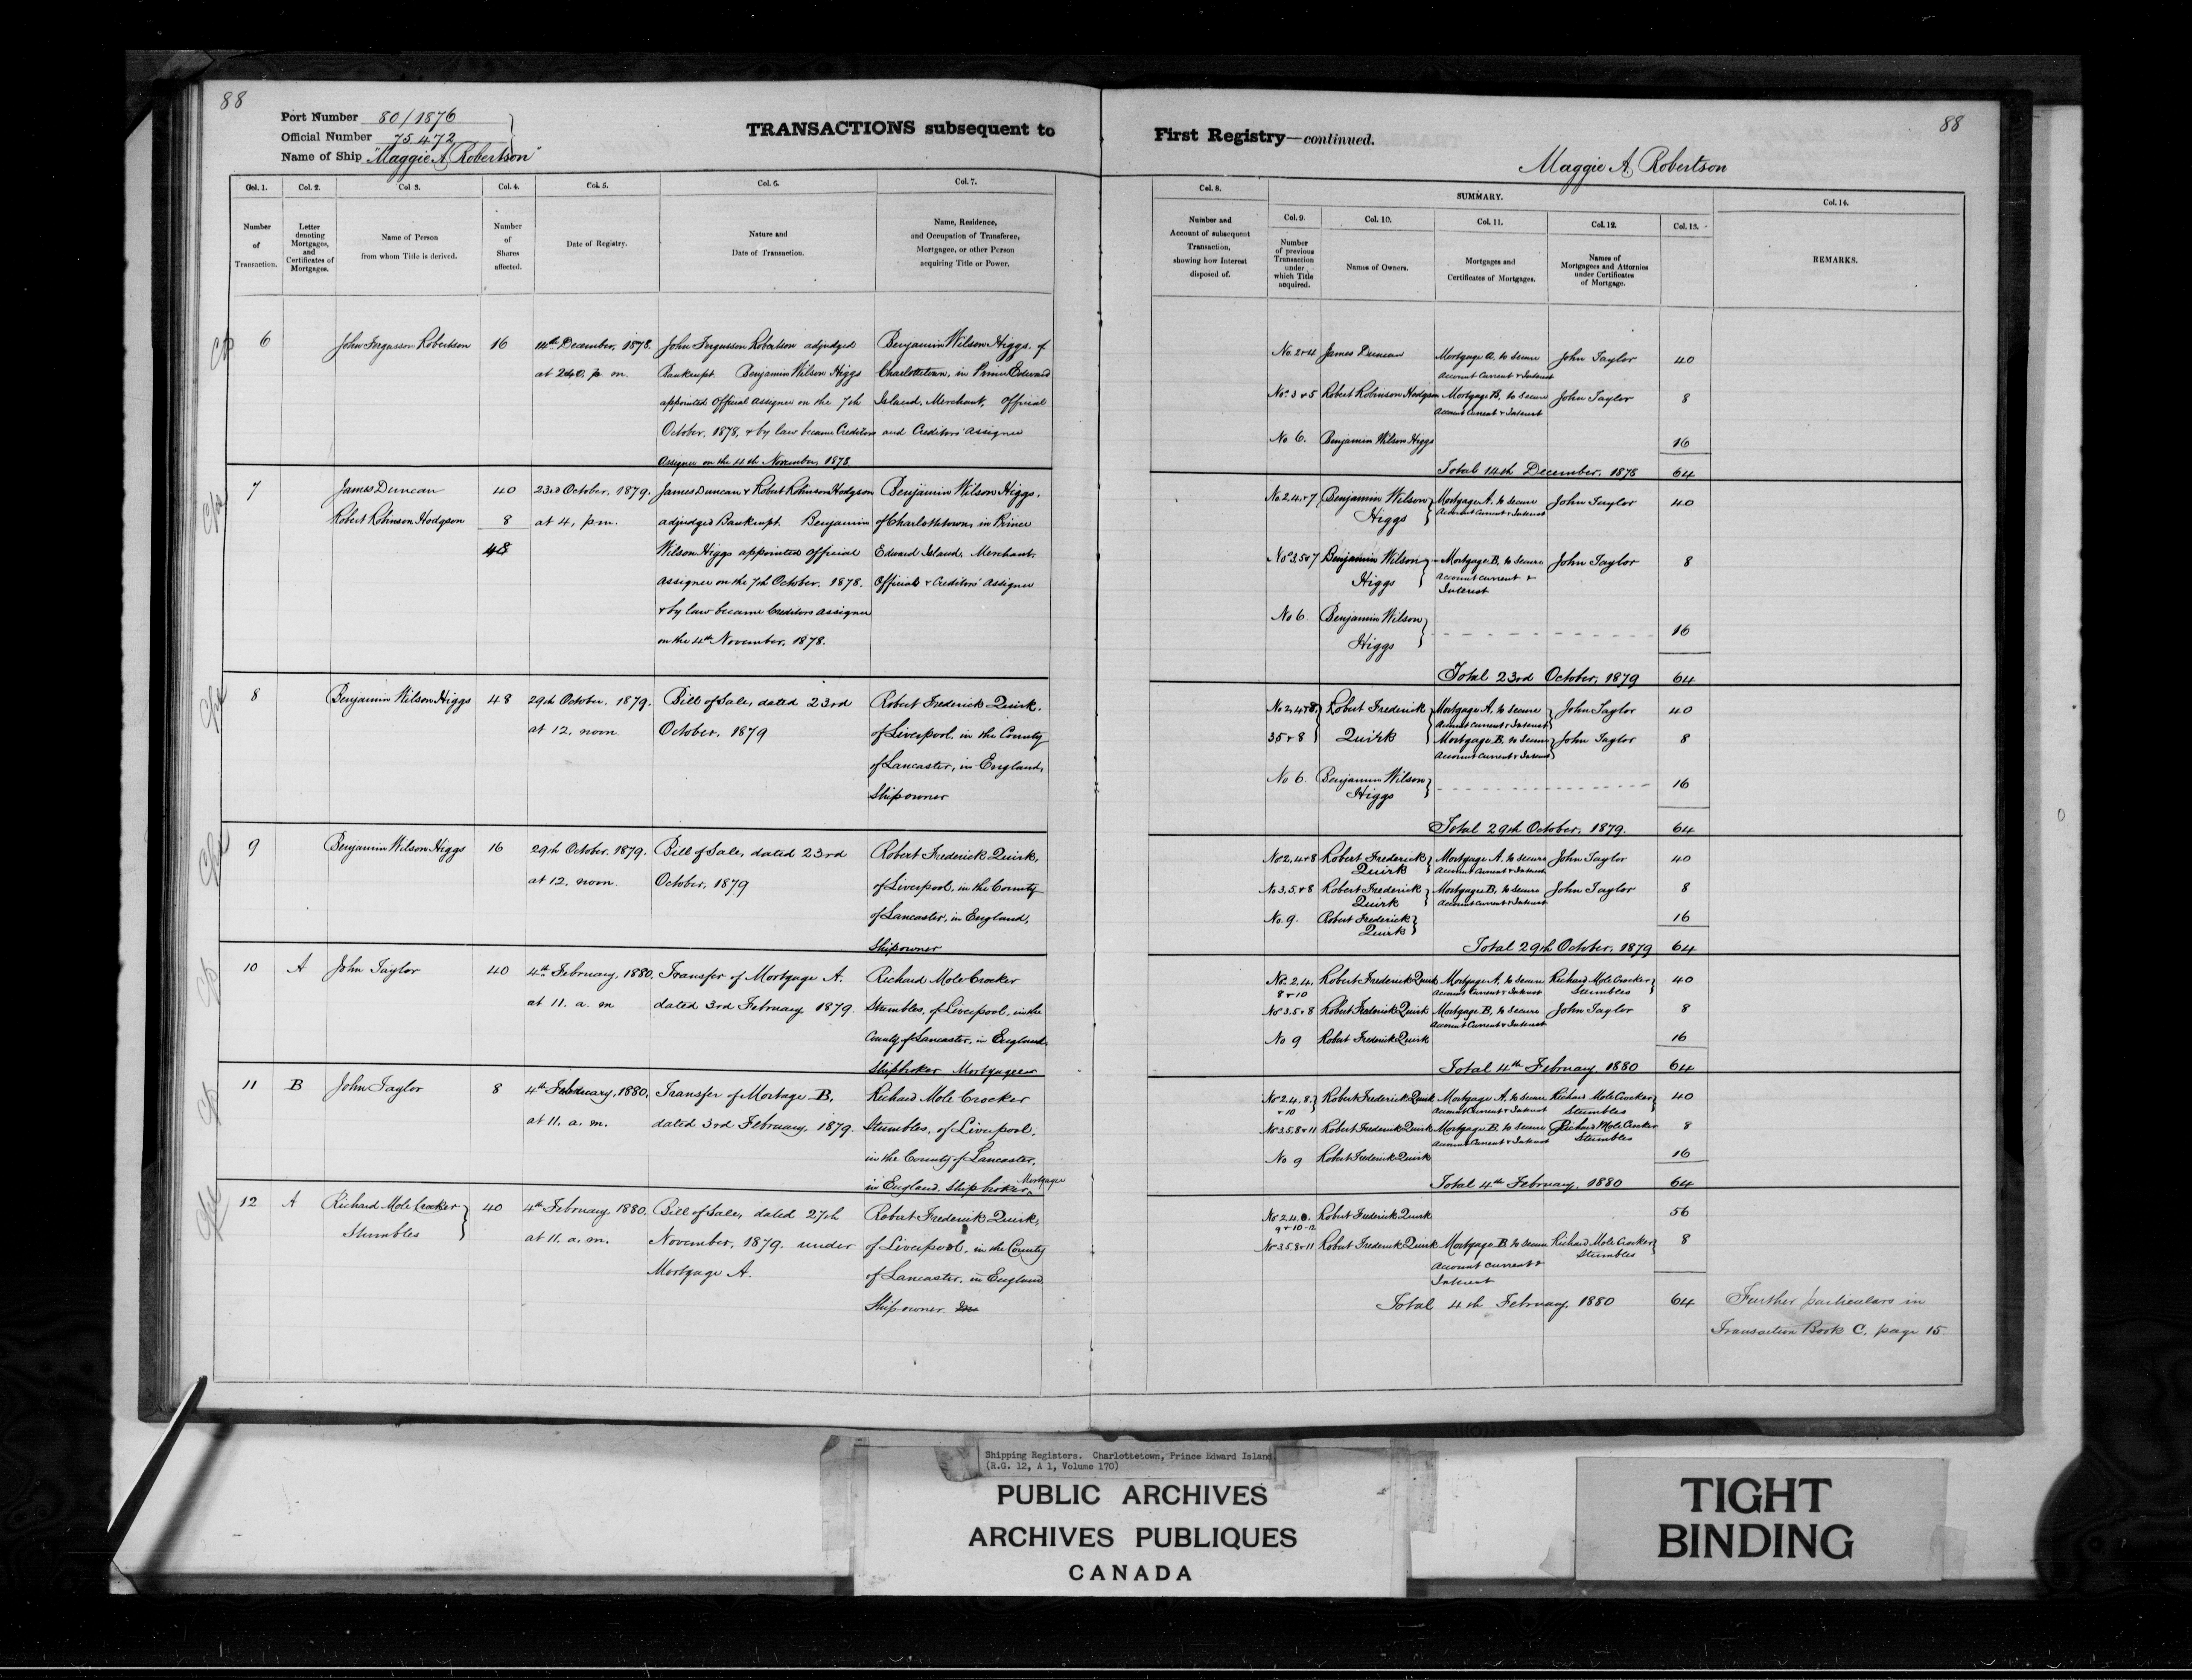 88
Port Number 80/1876
Official Number 75.472
Name of Ship "Maggie A Robertson"
TRANSACTIONS subsequent to
Col. 1.
Col. 2.
Col 3.
Col. 4.
Col. 5.
Col. 6.
Col. 7.
Number of Transaction.
Letter denoting Mortgages, and Certificates of Mortgages.
Name of Person from whom Title is derived.
Number of Shares affected.
Date of Registry.
Nature and Date of Transaction.
Name, Residence, and Occupation of Transferee, Mortgagee, or other Person acquiring Title or Power.
6 John Fergusson Robertson 16 14th December, 1878. John Fergusson Robertson adjudged Benjamin Wilson Higgs, of
at 2.40, p. m. Bankrupt. Benjamin Wilson Higgs Charlottetown, in Prince Edward
appointed Official Assignee on the 7th Island, Merchant, Official
October, 1878, & by law became Creditors and Creditors' Assignee
Assignee on the 4th November, 1878.
7 James Duncan 40 23rd October, 1879. James Duncan & Robert Robinson Hodgson Benjamin Wilson Higgs,
Robert Robinson Hodgson 8 at 4, p.m. adjudged Bankrupt. Benjamin of Charlottetown, in Prince
48 Wilson Higgs appointed Official Edward Island, Merchant.
Assignee on the 7th October, 1878. Official & Creditors' Assignee
& by law became Creditors Assignee
on the 4th November, 1878.
8 Benjamin Wilson Higgs 48 29th October, 1879. Bill of Sale, dated 23rd Robert Frederick Quirk,
at 12, noon October, 1879 of Liverpool, in the County
of Lancaster, in England,
Shipowner
9 Benjamin Wilson Higgs 16 29th October, 1879. Bill of Sale, dated 23rd Robert Frederick Quirk,
at 12, noon. October, 1879 of Liverpool, in the County
of Lancaster, in England,
Shipowner
10 A John Taylor 40 4th February, 1880. Transfer of Mortgage A. Richard Mole Crocker
at 11. a. m dated 3rd February, 1879. Stumbles, of Liverpool, in the
County of Lancaster, in England
Shipbroker Mortgagee
11 B John Taylor 8 4th February, 1880, Transfer of Mortage B, Richard Mole Crocker
at 11. a. m. dated 3rd February, 1879. Stumbles, of Liverpool,
in the County of Lancaster,
in England, Shipbroker, Mortgagee
12 A Richard Mole Crocker 40 4th February, 1880. Bill of Sale, dated 27th Robert Frederick Quirk,
Stumbles at 11. a. m. November, 1879. under of Liverpool, in the County
Mortgage A. of Lancaster, in England
Shipowner
88
First Registry—continued.
Maggie A. Robertson
Col. 8.
SUMMARY.
Col. 14.
Col. 9.
Col. 10.
Col. 11.
Col. 12.
Col. 13.
Number and Account of subsequent Transaction, showing how Interest disposed of.
Number of previous Transaction under which Title acquired.
Names of Owners.
Mortgages and Certificates of Mortgages.
Names of Mortgagees and Attornies under Certificates of Mortgage.
REMARKS.
No. 2 & 4 James Duncan Mortgage A. to secure John Taylor 40
Account Current & Interest
No. 3 & 5 Robert Robinson Hodgson Mortgage B, to secure John Taylor 8
Account Current & Interest
No 6. Benjamin Wilson Higgs 16
Total 14th December, 1878 64
No. 2.4. & 7 Benjamin Wilson Mortgage A. to secure John Taylor 40
Higgs Account Current & Interest
No 3.5 & 7 Benjamin Wilson Mortgage B, to secure John Taylor 8
Higgs Account Current &
Interest
No 6 Benjamin Wilson 16
Higgs
Total 23rd October, 1879 64
No 2, 4 & 8 Robert Frederick Mortgage A. to secure John Taylor 40
Account Current & Interest
3.5 & 8 Quirk Mortgage B, to secure John Taylor 8
Account Current & Interest
No 6. Benjamin Wilson 16
Higgs
Total 29th October, 1879. 64
No 2, 4 & 8 Robert Frederick Mortgage A. to secure John Taylor 40
Quirk Account Current & Interest
No 3, 5, & 8 Robert Frederick Mortgage B, to secure John Taylor 8
Quirk Account Current & Interest
No. 9. Robert Frederick 16
Quirk
Total 29th October, 1879 64
No. 2.4. Robert Frederick Quirk Mortgage A, to secure Richard Mole Crocker 40
8 & 10 Account Current & Interest Stumbles
No 3.5 & 8 Robert Frederick Quirk Mortgage B, to secure John Taylor 8
Account Current & Interest
No 9 Robert Frederick Quirk 16
Total 4th February, 1880 64
No 2.4.8. Robert Frederick Quirk Mortgage A, to secure Richard Mole Crocker 40
& 10 Account Current & Interest Stumbles
No 3.5.8 & 11 Robert Frederick Quirk Mortgage B, to secure Richard Mole Crocker 8
Account Current & Interest Stumbles
No 9 Robert Frederick Quirk 16
Total 4th February, 1880 64
No 2.4.8. Robert Frederick Quirk 56
9 & 10-12
No 3.5.8 & 11 Robert Frederick Quirk Mortgage B to secure Richard Mole Crocker 8
Account current & Stumbles
Interest
Total 4th February, 1880 64 Further particulars in
Transaction Book C, page 15
Shipping Registers. Charlottetown, Prince Edward Island
(R.G. 12, A 1, Volume 170)
PUBLIC ARCHIVES
ARCHIVES PUBLIQUES
CANADA
TIGHT
BINDING